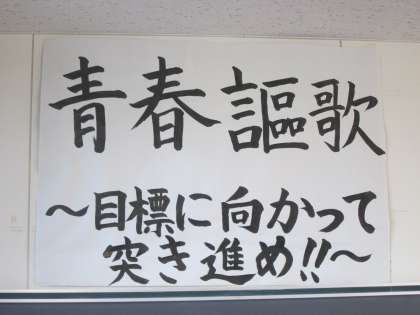 青春謳歌
～目標に向かって
突き進め!!～